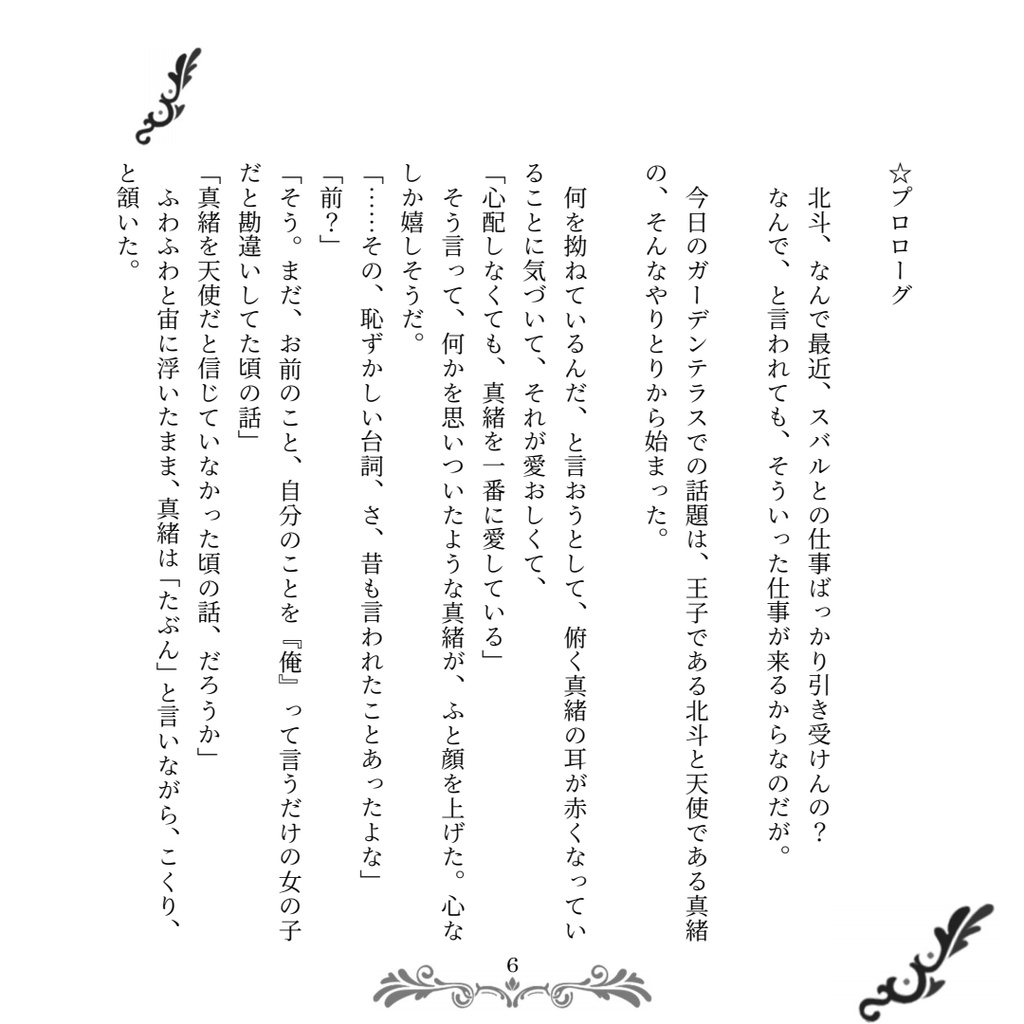 ☆プロローグ
北斗、なんで最近、スバルとの仕事ばっかり引き受けんの？
なんで、と言われても、そういった仕事が来るからなのだが。
今日のガーデンテラスでの話題は、王子である北斗と天使である真緒
の、そんなやりとりから始まった。
何を拗ねているんだ、と言おうとして、俯く真緒の耳が赤くなってい
ることに気づいて、それが愛おしくて、
「心配しなくても、真緒を一番に愛している」
そう言って、何かを思いついたような真緒が、ふと顔を上げた。心な
しか嬉しそうだ。
「……その、恥ずかしい台詞、さ、昔も言われたことあったよな」
「前？」
「そう。まだ、お前のこと、自分のことを『俺』って言うだけの女の子
だと勘違いしてた頃の話」
「真緒を天使だと信じていなかった頃の話、だろうか」
ふわふわと宙に浮いたまま、真緒は「たぶん」と言いながら、こくり、
と頷いた。
6